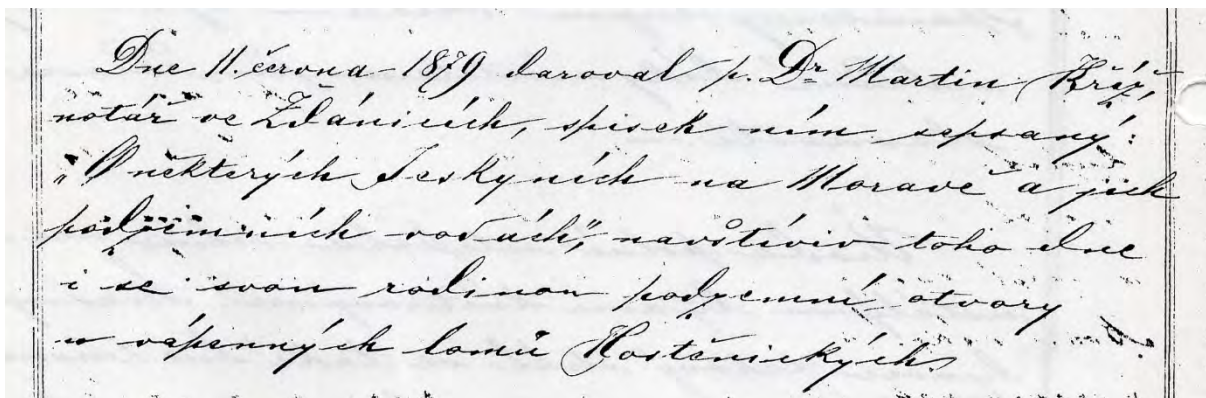 Dne 11. června 1879 daroval p. Dr. Martin Kříž,
notář ve Ždánicích, spisek ním sepsaný:
„O některých Jeskyních na Moravě a jich
podzimních vodách“, navštíviv toho dne
i se svou rodinou podzemní otvory
u vápenných lomů Hostěnických.